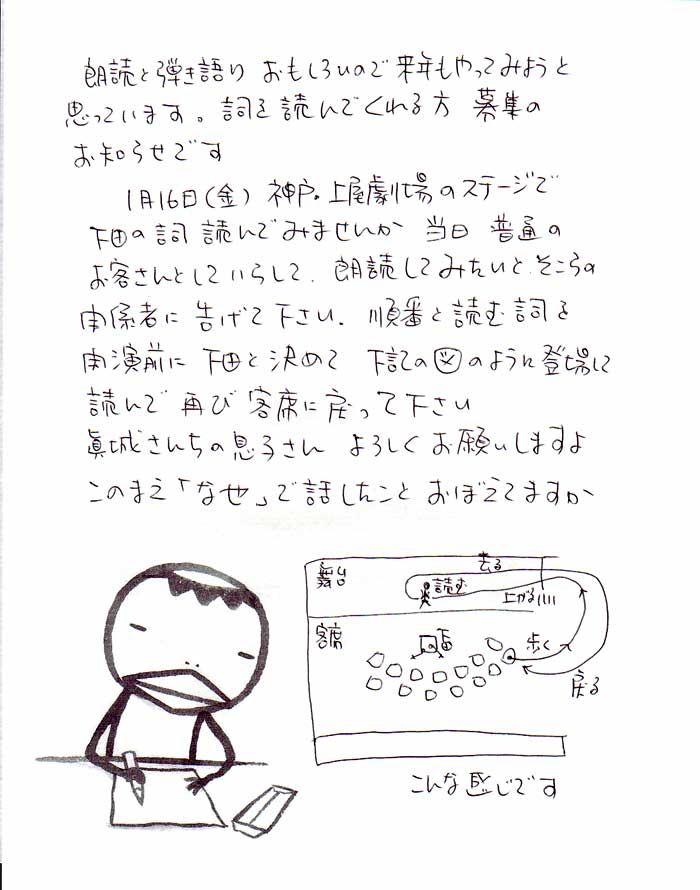 朗読と弾き語り おもしろいので来年もやってみようと
思っています。詞を読んでくれる方 募集の
お知らせです
1月16日(金) 神戸・上屋劇場のステージで
下田の詞 読んでみませんか 当日 普通の
お客さんとしていらして、朗読してみたいと、そこらの
関係者に 告げて下さい。順番と読む詞を
開演前に 下田と決めて 下記の図のように登場して
読んで 再び 客席に戻って下さい
眞城さんちの息子さん よろしくお願いしますよ
このまえ「なぜ」で話したこと おぼえてますか
去る
舞台
読む
上がる
客席
歩く
戻る
こんな感じです